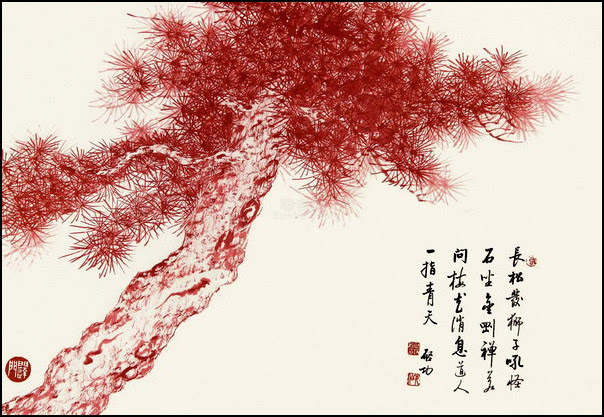 長松發獅子吼怪
石坐金剛禪若
問梅花消息道人
一指青天 啟功